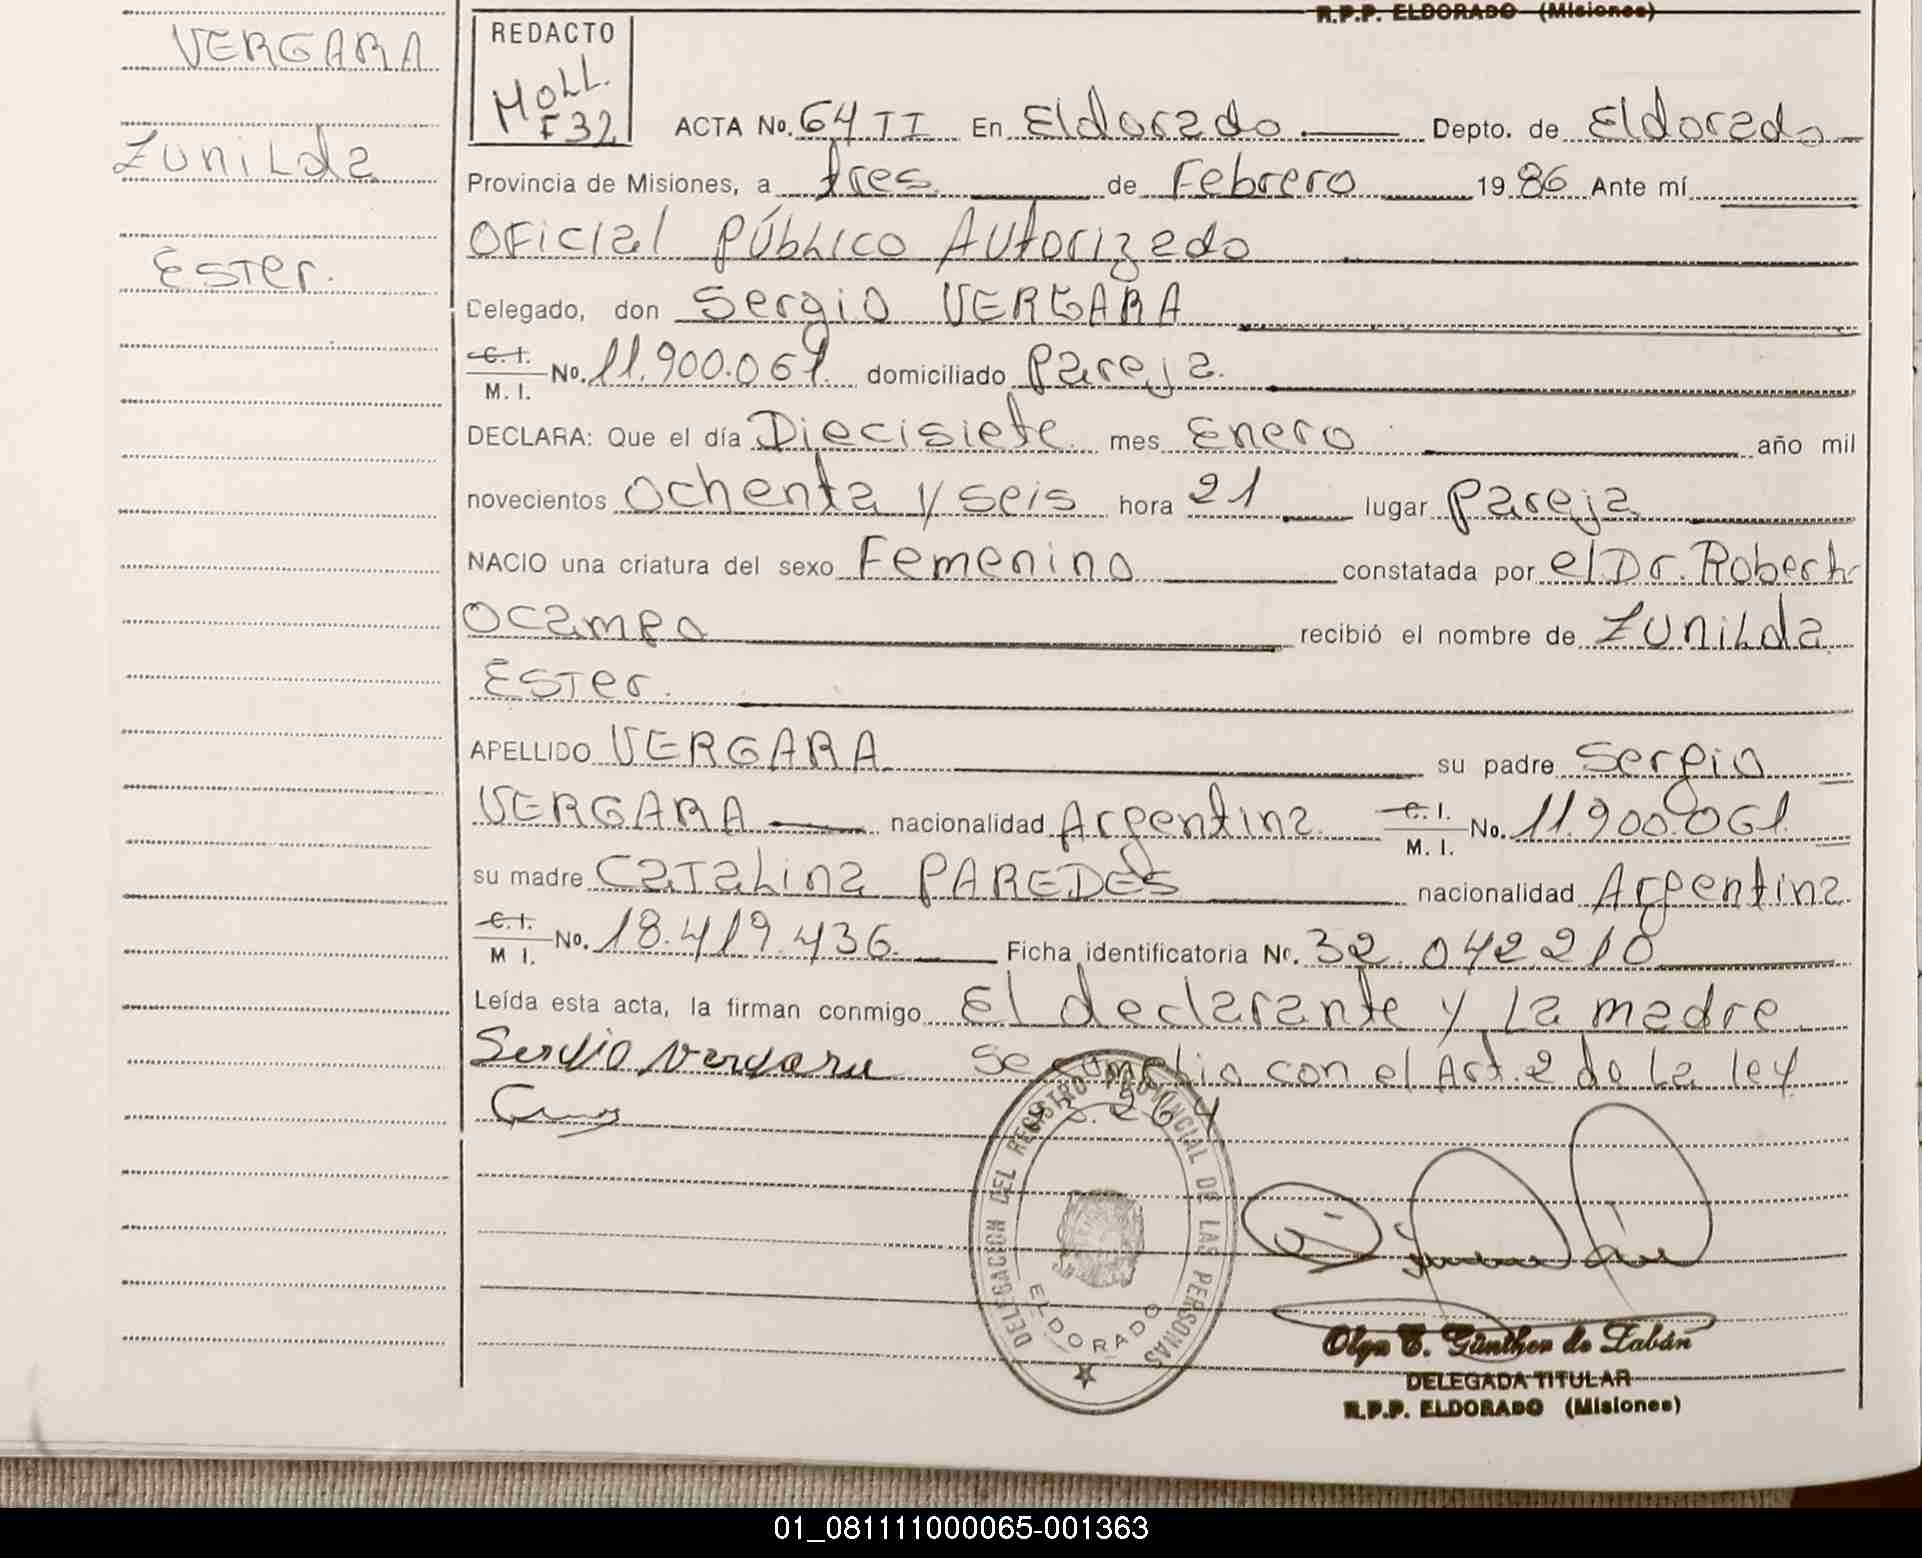 R.P.P. ELDORADO (Misiones)
VERGARA
Zunilda
Ester.
REDACTO
MOLL.
F 32
ACTA No. 64 TI En Eldorado Depto. de Eldorado
Provincia de Misiones, a tres de Febrero 19 86 Ante mí
Oficial Público Autorizado
Delegado, don Sergio VERGARA
C. I.
M. I. No. 11.900.061. domiciliado Pareja.
DECLARA: Que el día Diecisiete mes Enero año mil
novecientos ochenta y seis hora 21 lugar Pareja
NACIO una criatura del sexo Femenino constatada por el Dr. Roberto
Ocampo recibió el nombre de Zunilda
Ester.
APELLIDO VERGARA su padre Sergio
VERGARA nacionalidad Argentina C. I.
M. I. No. 11.900.061.
su madre Catalina PAREDES nacionalidad Argentina
C. I.
M I. No. 18.419.436. Ficha identificatoria Nr. 32.042.210
Leída esta acta, la firman conmigo El declarante y la madre
Serjio Vergara Se cumplio con el Art. 2 de la ley
23.264
DELEGACION DEL REGISTRO PROVINCIAL DE LAS PERSONAS
ELDORADO
Olga E. Günther de Labán
DELEGADA TITULAR
R.P.P. ELDORADO (Misiones)
01_081111000065-001363